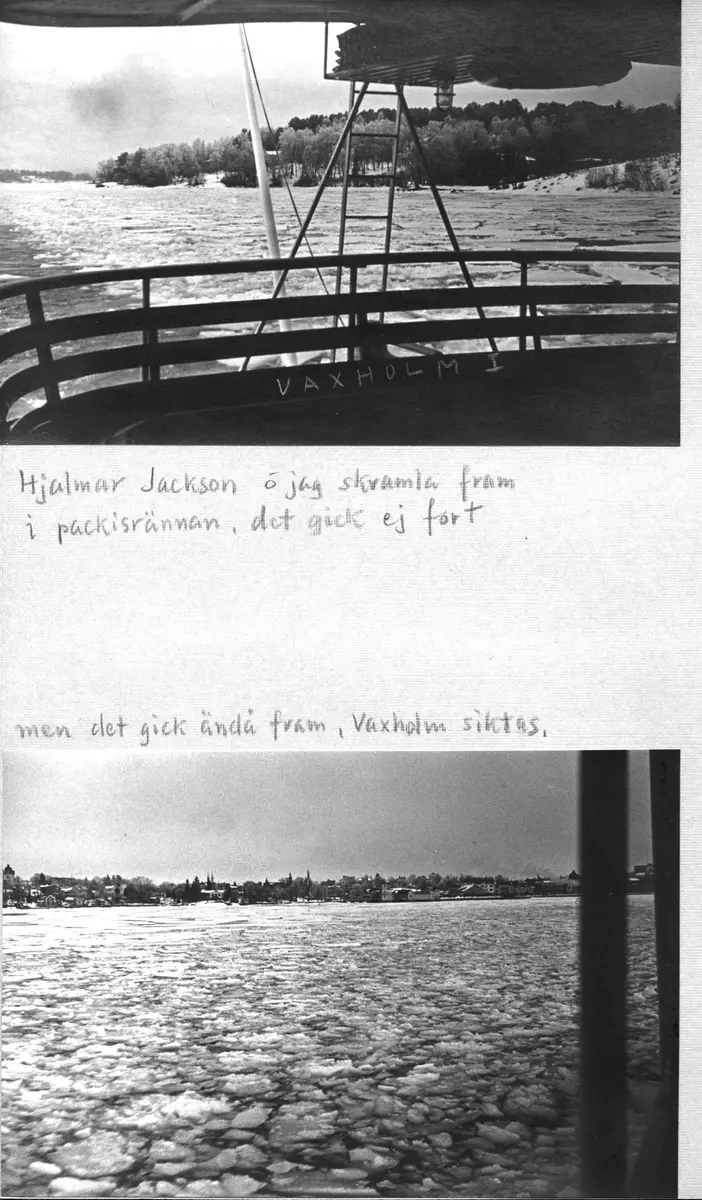 VAXHOLM I
Hjalmar Jackson ö jag skramla fram
i packisrännan, det gick ej fort
men det gick ändå fram, Vaxholm siktas.